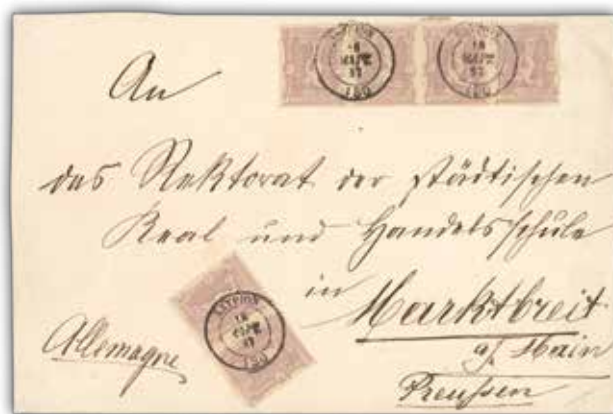 An
das Rektorat der städtischen
Real und Handelsschule
in Marktbreit
a/ Main
Allemagne
Preußen